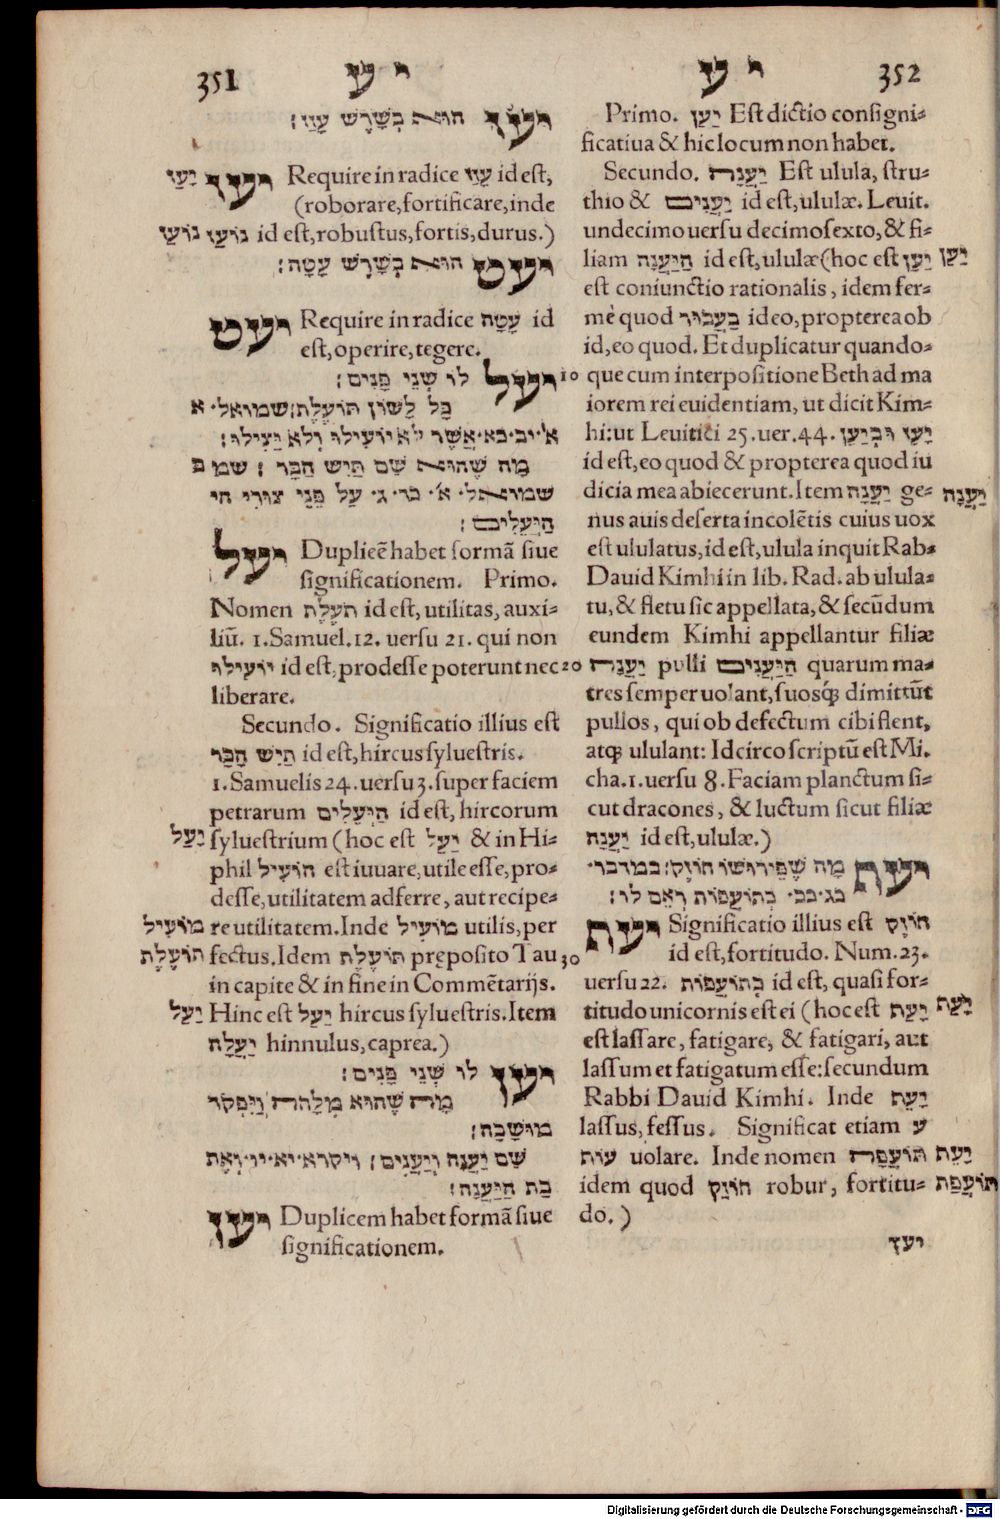 351 י ע
יעז הוא בְּשָׁרֶשׁ עָזַז׃
יַעַז יעז Require in radice עָזַז id est,
(roborare, fortificare, inde
נוֹעָז נוֹעָז id est, robustus, fortis, durus.)
יעט הוא בְּשָׁרֶשׁ עָטָה׃
יעט Require in radice עָטָה id
est, operire, tegere.
יעל לו שְׁנֵי פָנִים׃
כָּל לָשׁוֹן תּוֹעֶלֶת׃ שמואל· א
א׳·יב·כא·אֲשֶׁר לֹא יוֹעִילוּ וְלֹא יַצִּילוּ׃
מַה שֶׁהוּא שֵׁם תַּיִשׁ הַבָּר ׃ שמו ב
שמואל· א׳· כד· ג· עַל פְּנֵי צוּרֵי הי
הַיְּעֵלִים׃
יעל Duplicē habet formā siue
significationem. Primo.
Nomen תֹּעֶלֶת id est, utilitas, auxi-
liū. 1. Samuel. 12. uersu 21. qui non
יוֹעִילוּ id est, prodesse poterunt nec 20
liberare.
Secundo. Significatio illius est
תַּיִשׁ הַבָּר id est, hircus syluestris.
1. Samuelis 24. uersu 3. super faciem
petrarum הַיְּעֵלִים id est, hircorum
יָעַל syluestrium (hoc est יָעַל & in Hi-
phil הוֹעִיל est iuuare, utile esse, pro-
desse, utilitatem adferre, aut recipe-
מוֹעִיל re utilitatem. Inde מוֹעִיל utilis, per
תּוֹעֶלֶת fectus. Idem תּוֹעֶלֶת pręposito Tau 30
in capite & in fine in Commētarijs.
יַעַל Hinc est יַעַל hircus syluestris. Item
יַעֲלַת hinnulus, caprea.)
יען לו שְׁנֵי פָנִים׃
מַה שֶׁהוּא מִלָּה
מוּשָׁבָה׃
שֵׁם יַעֲנָה וִיעֵנִים׃ ויקרא·יא·יו·וְאֶת
בַּת הַיַּעֲנָה׃
יען Duplicem habet formā siue
significationem.
י ע 352
Primo. יַעַן Est dictio consigni-
ficatiua & hic locum non habet.
Secundo. יַעֲנָה Est ulula, stru-
thio & יְעֵנִים id est, ululæ. Leuit.
undecimo uersu decimosexto, & fi-
liam הַיַּעֲנָה id est, ululæ (hoc est יַעַן יַעַן
est coniunctio rationalis, idem fer-
mè quod בַּעֲבוּר ideo, propterea ob
id, eo quod. Et duplicatur quando-
10 que cum interpositione Beth ad ma
iorem rei euidentiam, ut dicit Kim-
hi: ut Leuitici 25. uer. 44. יַעַן וּבְיַעַן
id est, eo quod & propterea quod iu
dicia mea abiecerunt. Item יַעֲנָה ge- יַעֲנָה
nus auis deserta incolētis cuius uox
est ululatus, id est, ulula inquit Rab-
Dauid Kimhi in lib. Rad. ab ulula-
tu, & fletu sic appellata, & secūdum
eundem Kimhi appellantur filiæ
יַעֲנָה pulli הַיְּעֵנִים quarum ma-
tres semper uolant, suosq́; dimittūt
pullos, qui ob defectum cibi flent,
atq; ululant: Idcirco scriptū est Mi.
cha. 1. uersu 8. Faciam planctum si-
cut dracones, & luctum sicut filiæ
יַעֲנָה id est, ululæ.)
יעף מַה שֶׁפֵּירוּשׁוֹ חוֹזֶק׃ במדבר·
כג·כב· כְּתוֹעֲפוֹת רְאֵם לוֹ׃
יעף Significatio illius est חוֹזֶק
id est, fortitudo. Num. 23.
uersu 22. כְּתוֹעֲפוֹת id est, quasi for-
titudo unicornis est ei (hoc est יָעַף יָעַף
est lassare, fatigare, & fatigari, aut
lassum et fatigatum esse: secundum
Rabbi Dauid Kimhi. Inde יָעֵף
lassus, fessus. Significat etiam ע
עוּף uolare. Inde nomen תּוֹעָפָה יָעֵף
idem quod חוֹזֶק robur, fortitu- תּוֹעָפָה
do.)
יעץ
Digitalisierung gefördert durch die Deutsche Forschungsgemeinschaft - DFG